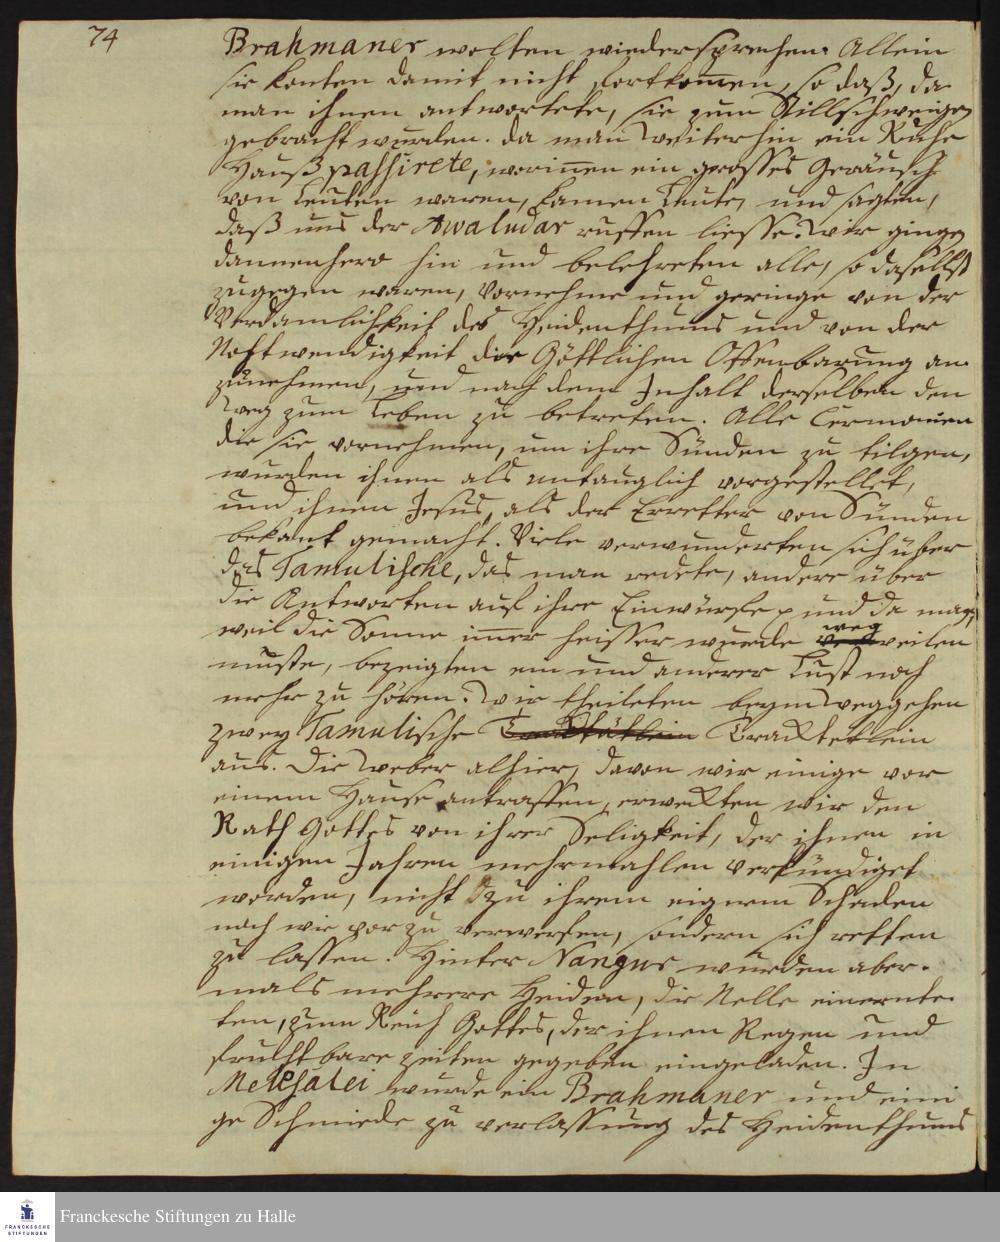 74
Brahmaner wolten wiedersprechen. Allein
sie konten damit nicht fortkommen, so daß, da
man ihnen antwortete, sie zum Stillschweigen
gebracht wurden. Da man weiter hin ein Ruhe
Hauß passirete, worinnen ein grosses Geräusch
von Leuten waren, kamen Leute, und sagten,
daß uns der Awaludar ruffen liesse. Wir gingen
dannenhero hin und belehreten alle, so daselbst
zugegen waren, Vornehme und geringe von der
Verdamlichkeit des Heidenthums und von der
Nothwendigkeit die Göttlichen Offenbarung an
zunehmen, und nach dem Inhalt derselben den
Weg zum Leben zu betreten. Alle Cermonien
die sie vornehmen, um ihre Sünden zu tilgen,
wurden ihnen als untauglich vorgestellet,
und ihnen Jesus, als der Erretter von Sünden
bekant gemacht. Viele verwunderten sich über
das Tamulische, das man redete, andere über
die Antworten auf ihre Einwürfe und da man,
weil die Sonne immer heisser wurde weg eilen
muste, bezeigten ein und anderer Lust noch
mehr zu hören. Wir theileten beym weggehen
zwey Tamulische Tracktätlein Tracktetlein
aus. Die Weber alhier, davon wir einige vor
einem Hause antraffen, erweckten wir den
Rath Gottes von ihrer Seligkeit, der ihnen in
einigen Jahren mehrmahlen verkündiget
worden, nicht zu ihrem eignem Schaden
nach wie vor zu verwerfen, sondern sich retten
zu lassen. Hinter Nangur wurden aber-
mals mehrere Heiden, die Nelle einernte-
ten, zum Reich Gottes, der ihnen Regen und
fruchtbare Zeiten gegeben eingeladen. In
Melesalei wurde ein Brahmaner und eini
ge Schmiede zu verlassung des Heidenthums
Franckesche Stiftungen zu Halle
FRANCKESCHE
STIFTUNGEN